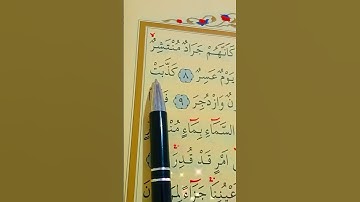 كَاَنَّهُمْ جَرَادٌ مُنْتَشِرٌ
يَوْمٌ عَسِرٌ ﴿٨﴾ كَذَّبَتْ
وَازْدُجِرَ ﴿٩﴾
السَّمَاءِ بِمَاءٍ
اَمْرٍ قَدْ قُدِرَ
جَزَاءً